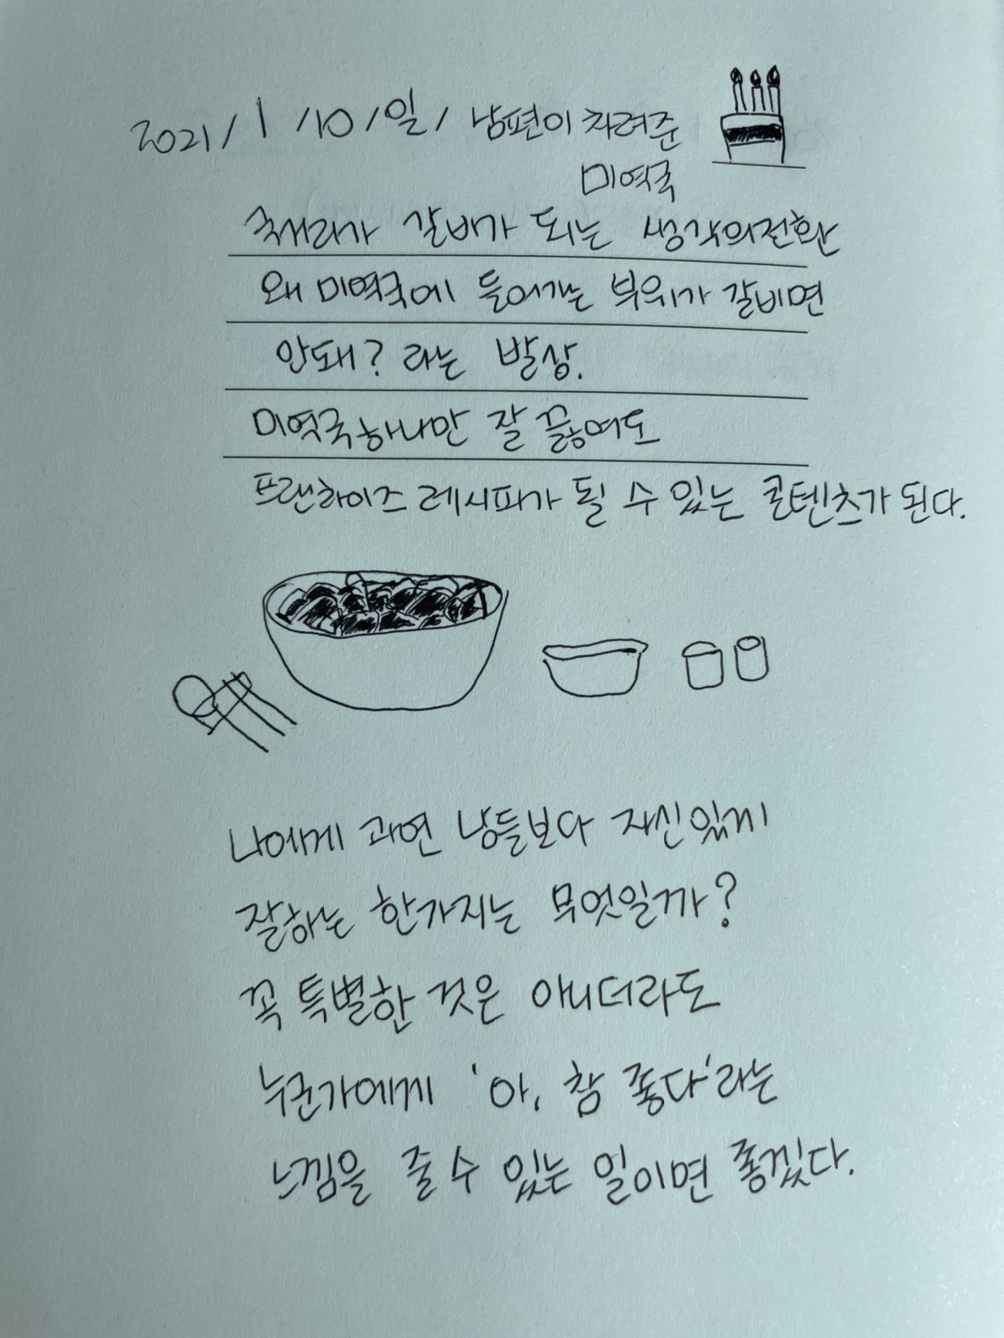 2021/1/10/일/ 남편이 차려준
미역국
국거리가 갈비가 되는 생각의전환
왜 미역국에 들어가는 부위가 갈비면
안돼? 라는 발상.
미역국하나만 잘 끓여도
프랜차이즈 레시피가 될 수 있는 콘텐츠가 된다.
나에게 과연 남들보다 자신있게
잘하는 한가지는 무엇일까?
꼭 특별한 것은 아니더라도
누군가에게 '아, 참 좋다'라는
느낌을 줄 수 있는 일이면 좋겠다.